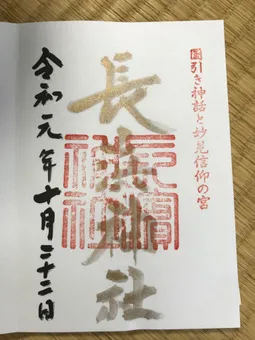 國引き神話と妙見信仰の宮
長濱神社
令和元年十月二十二日